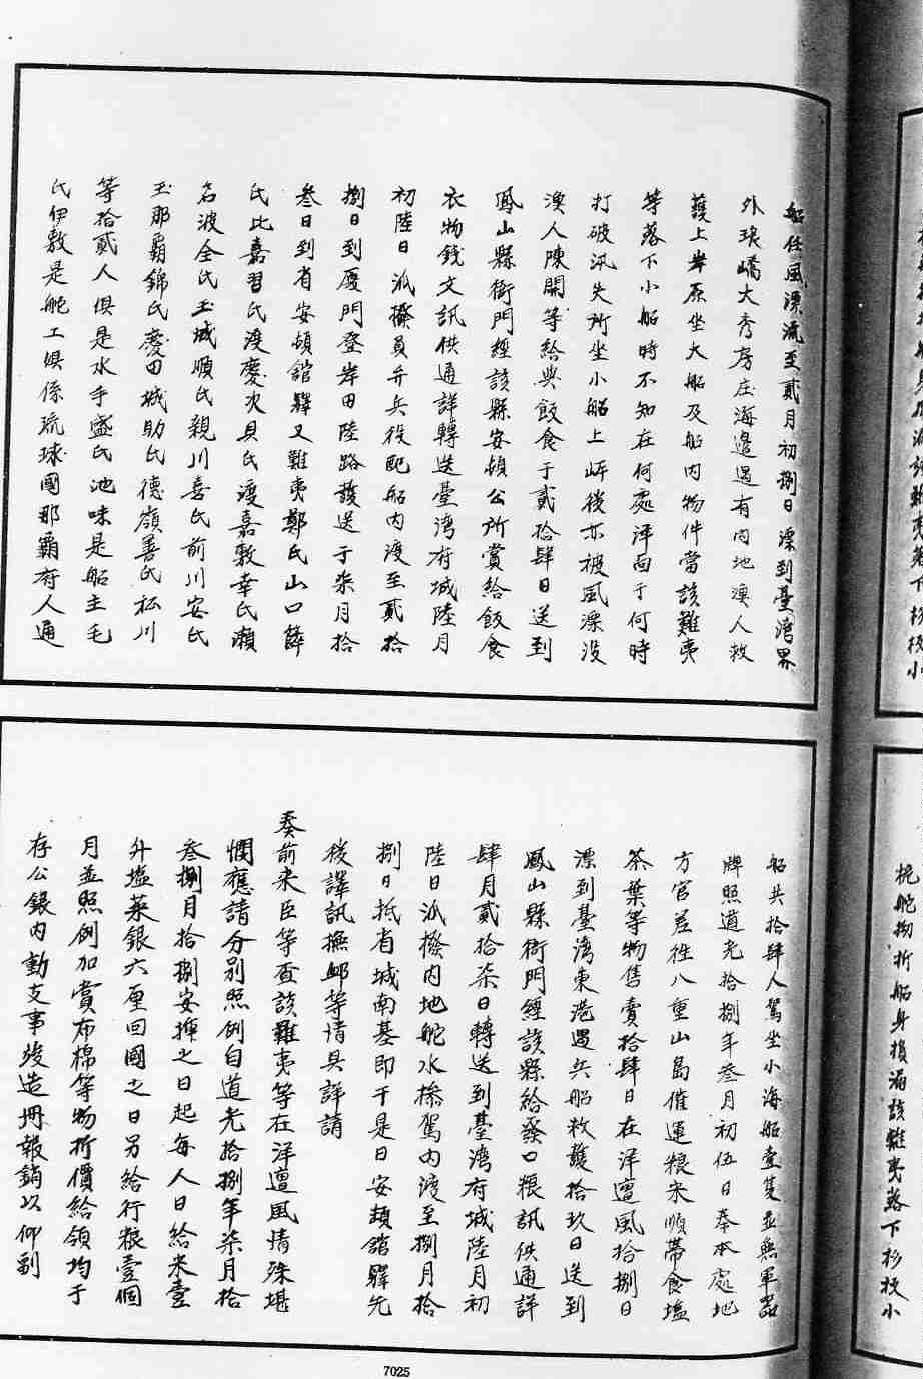 船任風漂流至貳月初捌日漂到臺灣界
外琅嶠大秀房庄海邉遇有內地漁人救
護上岸原坐大船及船內物件當該難夷
等落下小船時不知在何處洋面于何時
打破沉失所坐小船上岍後亦被風漂沒
漁人陳開等給與飯食于貳拾肆日送到
鳳山縣衙門經該縣安頓公所賞給飯食
衣物錢文訊供通詳轉送臺灣府城陸月
初陸日派撥員弁兵役配船內渡至貳拾
捌日到厦門登岸由陸路護送于柒月拾
叁日到省安頓舘驛又難夷鄭氏山口薛
氏比嘉習氏渡慶次貝氏渡嘉敷幸氏瀨
名波全氏玉城順氏親川喜氏前川安氏
玉那覇錦氏慶田城助氏德嶺善氏松川
等拾貳人俱是水手盛氏池味是船主毛
氏伊敷是舵工俱係琉球國那覇府人通
船共拾肆人駕坐小海船壹隻並無軍器
牌照道光拾捌年叁月初伍日奉本處地
方官差往八重山島催運粮米順帶食塩
茶葉等物售賣拾肆日在洋遭風拾捌日
漂到臺灣東港遇兵船救護拾玖日送到
鳳山縣衙門經該縣給發口粮訊供通詳
肆月貳拾柒日轉送到臺灣府城陸月初
陸日派撥內地舵水搀駕內渡至捌月拾
捌日抵省城南基即于是日安頓舘驛先
後譯訊撫卹等情具詳請
奏前來臣等查該難夷等在洋遭風情殊堪
憫應請分别照例自道光拾捌年柒月拾
叁捌月拾捌安揷之日起每人日給米壹
升塩菜銀六厘回國之日另給行粮壹個
月並照例加賞布棉等物折價給領均于
存公銀內動支事竣造冊報銷以仰副
7025
桅舵拗折船身損漏該難夷落下杉板小